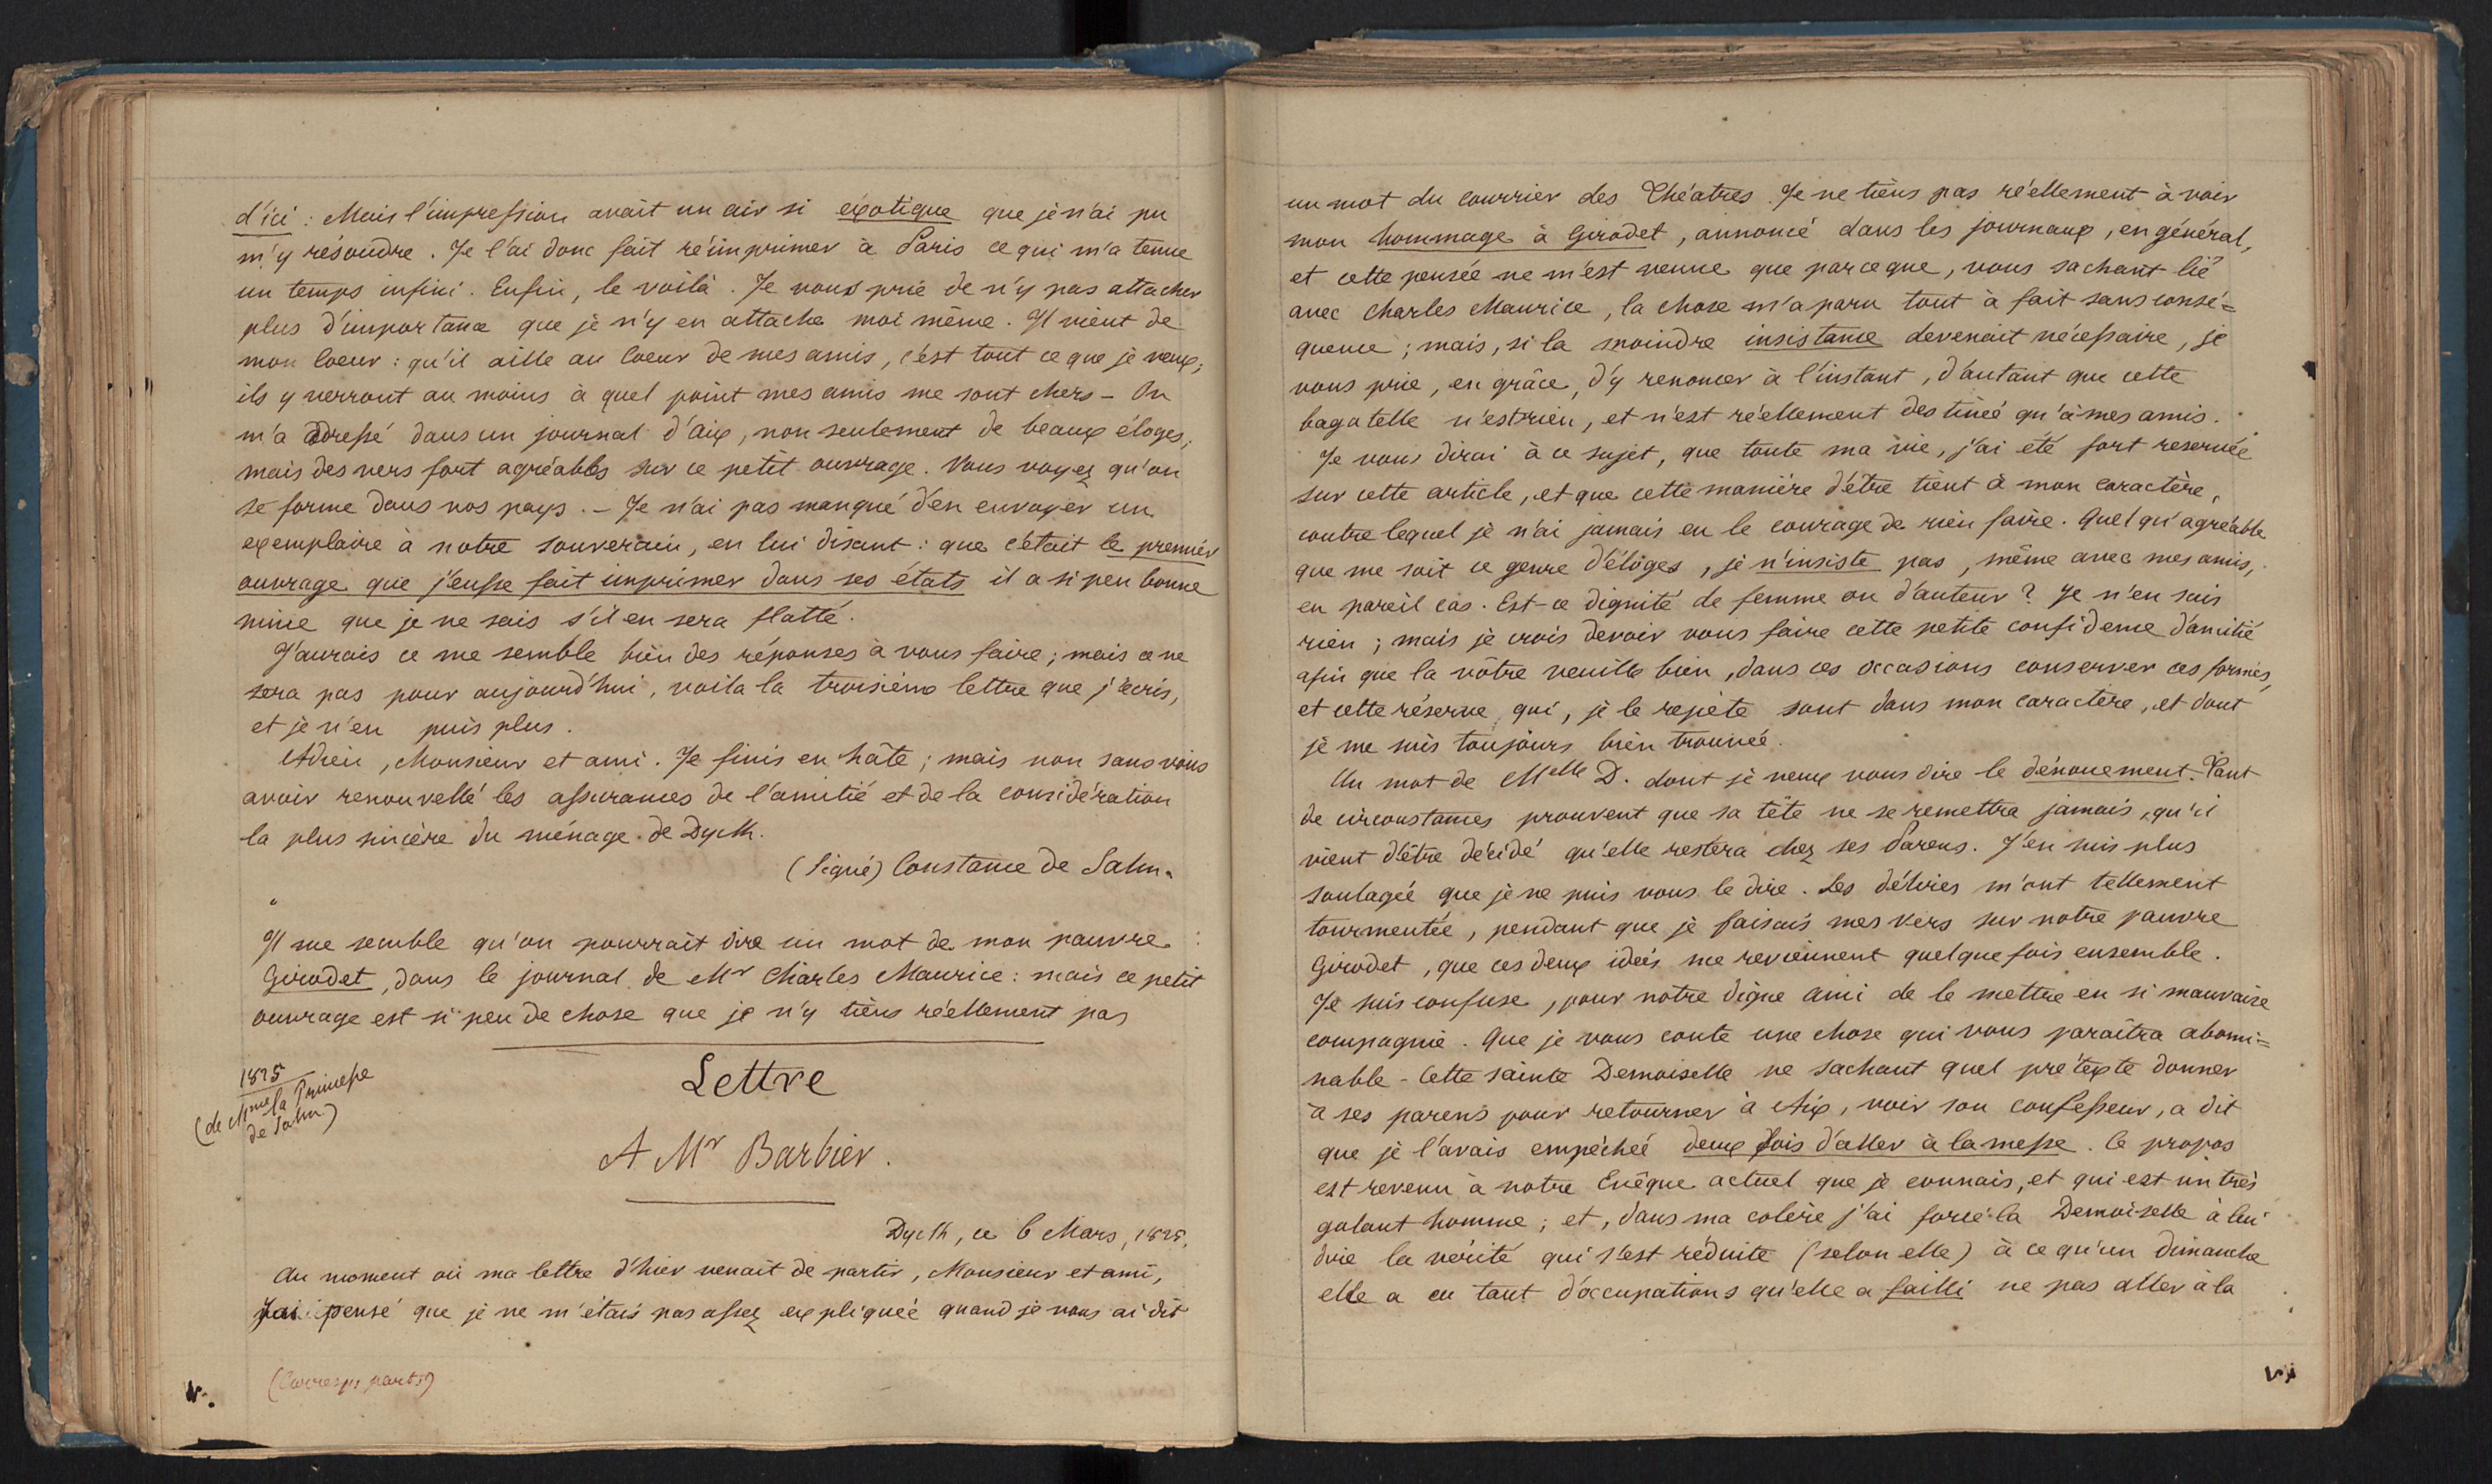 d'ici : Mais l'impression avait un air si exotique que je n'ai pu
m'y résoudre. Je l'ai donc fait réimprimer à Paris ce qui m'a tenue
un temps infini. Enfin, le voilà. Je vous prie de n'y pas attacher
plus d'importance que je n'y en attache moi même. Il vient de
mon coeur : qu'il aille au coeur de mes amis, c'est tout ce que je veux;
ils y verront au moins à quel point mes amis me sont chers - On
m'a adressé dans un journal d'aix, non seulement de beaux éloges,
mais des vers fort agréables sur ce petit ouvrage. Vous voyez qu'on
se forme dans nos pays. - Je n'ai pas manqué d'en envoyer un
exemplaire à notre souverain, en lui disant : que c'était le premier
ouvrage que j'eusse fait imprimer dans ses états il a si peu bonne
mine que je ne sais s'il en sera flatté.
J'aurais ce me semble bien des réponses à vous faire ; mais ce ne
sera pas pour aujourd'hui, voila la troisième lettre que j'écris,
et je n'en puis plus.
Adieu, Monsieur et ami. Je finis en hâte ; mais non sans vous
avoir renouvellé les assurances de l'amitié et de la considération
la plus sincère du ménage de Dyck.
(Signé) Constance de Salm.
"
Il me semble qu'on pourrait dire un mot de mon pauvre
Girodet, dans le journal de Mr Charles Maurice : mais ce petit
ouvrage est si peu de chose que je n'y tiens réellement pas
1825
(de Mme la Princesse
de Salm)
Lettre
A Mr Barbier.
Dyck, ce 6 Mars, 1825.
Au moment où ma lettre d'hier venait de partir, Monsieur et ami,
j'ai pensé que je ne m'étais pas assez expliquée quand je vous ai dit
(Corresp. part.)
un mot du courrier des Théatres. Je ne tiens pas réellement à voir
mon hommage à Girodet, annoncé dans les journaux, en général,
et cette pensée ne m'est venue que parceque, vous sachant lié
avec Charles Maurice, la chose m'a paru tout à fait sans consé=
quence ; mais, si la moindre insistance devenait nécessaire, je
vous prie, en grâce, d'y renoncer à l'instant, d'autant que cette
bagatelle n'est rien, et n'est réellement destinée qu'à mes amis.
Je vous dirai à ce sujet, que toute ma vie, j'ai été fort reservée
sur cette article, et que cette manière d'être tient à mon caractère,
contre lequel je n'ai jamais eu le courage de rien faire. Quelqu'agréable
que me soit ce genre d'éloges, je n'insiste pas, même avec mes amis,
en pareil cas. Est-ce dignité de femme ou d'auteur ? Je n'en sais
rien ; mais je crois devoir vous faire cette petite confidence d'amitié
afin que la vôtre veuille bien, dans ces occasions conserver ces formes,
et cette réserve qui, je le repète sont dans mon caractère, et dont
je me suis toujours bien trouvée.
Un mot de Melle D. dont je veux vous dire le dénouement. Tant
de circonstances prouvent que sa tête ne se remettra jamais, qu'il
vient d'être décidé qu'elle restera chez ses Parens. J'en suis plus
soulagée que je ne puis vous le dire. Ses délires m'ont tellement
tourmentée, pendant que je faisais mes vers sur notre pauvre
Girodet, que ces deux idées me reviennent quelque fois ensemble.
Je suis confuse, pour notre digne ami de le mettre en si mauvaise
compagnie. Que je vous conte une chose qui vous paraîtra abomi=
nable - Cette sainte Demoiselle ne sachant quel prétexte donner
à ses parens pour retourner à Aix, voir son confesseur, a dit
que je l'avais empêchée deux fois d'aller à la messe. Ce propos
est revenu à notre Evêque actuel que je connais, et qui est un très
galant homme ; et, dans ma colère j'ai forcé la Demoiselle à lui
dire la vérité qui s'est réduite (selon elle) à ce qu'un dimanche
elle a eu tant d'occupations qu'elle a failli ne pas aller à la